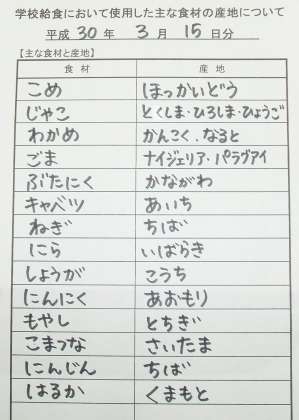 学校給食において使用した主な食材の産地について
平成 30 年 3 月 15 日分
【主な食材と産地】
食材 産地
こめ ほっかいどう
じゃこ とくしま・ひろしま・ひょうご
わかめ かんこく、なると
ごま ナイジェリア・パラグアイ
ぶたにく かながわ
キャベツ あいち
ねぎ ちば
にら いばらき
しょうが こうち
にんにく あおもり
もやし とちぎ
こまつな さいたま
にんじん ちば
はるか くまもと